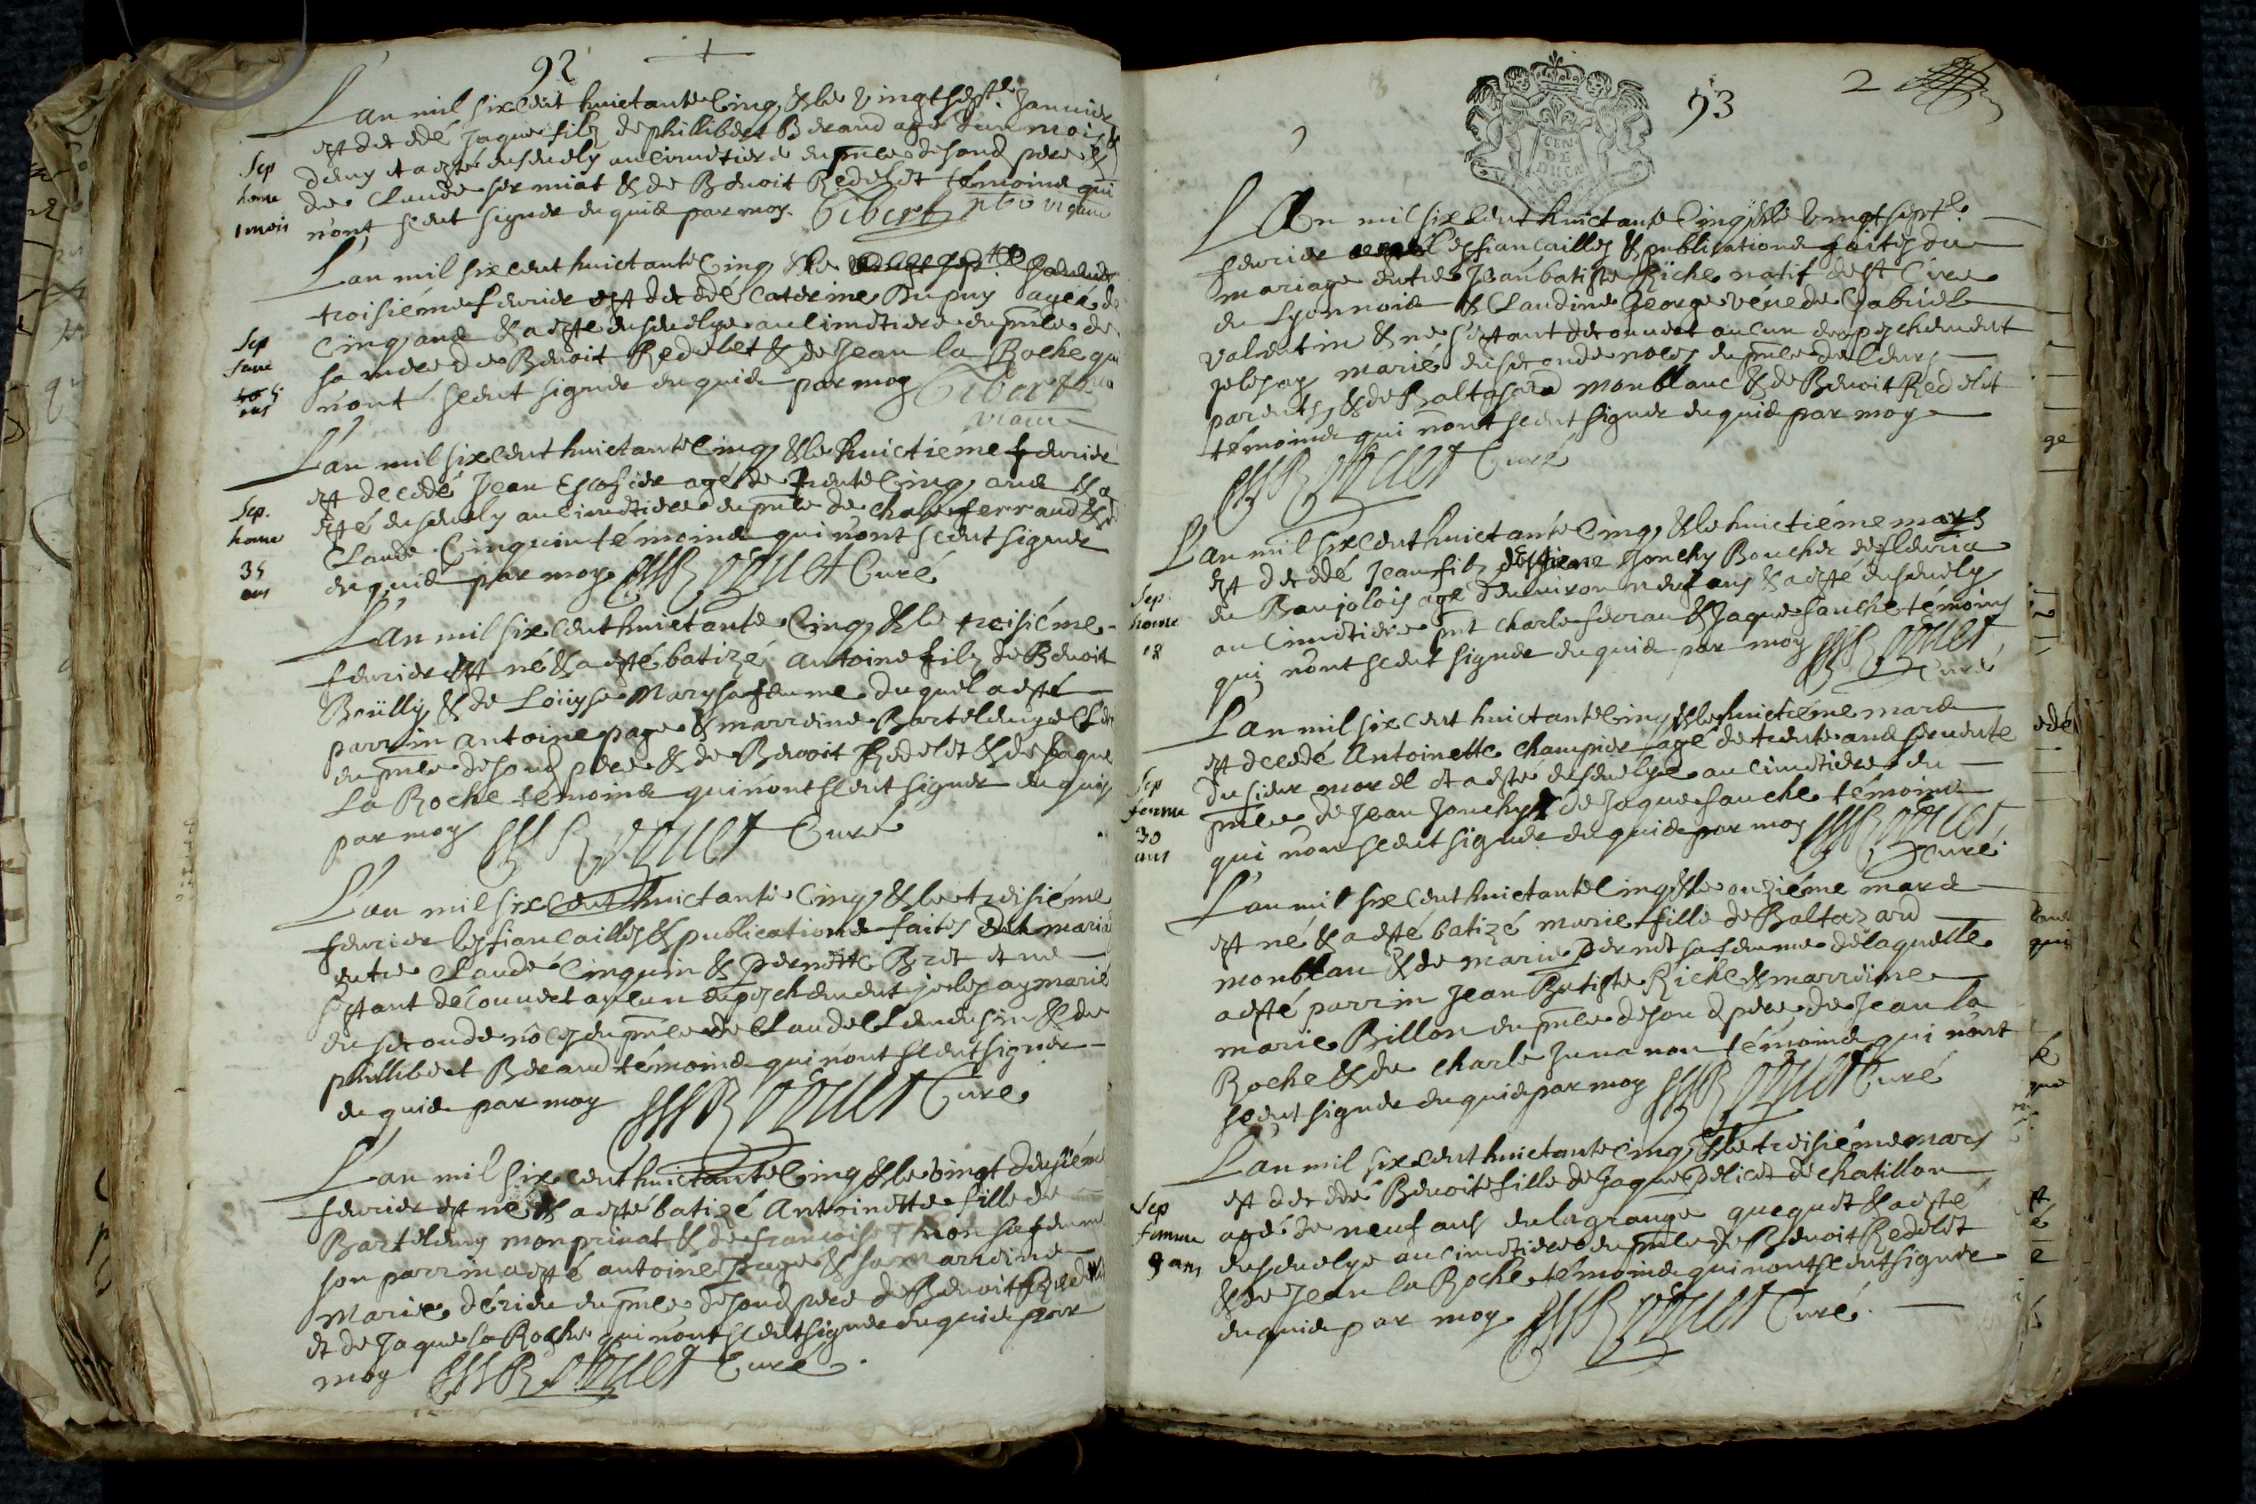 92
L'an mil six cent huictante cinq & le vingt septe Januier
est decedé Jaque filz de phillibert Beraud agé d'un mois &
demy et a esté enseuely au cimetiere en pnce de son d pere &
de Claude sermiat & de Benoit Redelet témoins qui
n'ont sceut signer enquis par moy. Gibert ptre vicaire
Sep
home
1 mois
L'an mil six cent huictante cinq & le
troisiéme feurier est decedé Caterine Dupuy agée de
cinq ans & a esté enseuelye au cimetiere en pnce de
sa mere de Benoit Redelet & de Jean la Roche qui
n'ont sceut signer enquis par moy Gibert
vicaire
Sep
feme
5
ans
L'an mil six cent huictante cinq & le huictieme feurier
est decedé Jean Escofier agé de trente cinq ans & a
esté enseuely au cimetiere en pnce de charle ferraud & de
Claude Cinquin témoins qui n'ont sceut signer
enquis par moy Curé
Sep.
home
35
ans
L'an mil six cent huictante cinq & le troisiéme
feurier est né & a esté batizé antoine filz de Benoit
Boüilly & de Loüyse Mary sa femme duquel a esté
parrin antoine page & marreine Bartelemye
en pnce de son d pere & de Benoit Redelet & de Jaque
La Roche témoins qui n'ont sceut signer enquis
par moy Curé
L'an mil six cent huictante cinq & le troisiéme
feurier les fiancailles & publications faites du maria
entre Claude Cinquin & Pernette Bret et ne
s'estant découuert aucun enpeschement je les ay marié
en seconde nôces en pnce de Claude & de
phillibert Beraud témoins qui n'ont sceut signer
enquis par moy Curé
L'an mil six cent huictante cinq & le vingt deusiéme
feurier est né & a esté batizé Antoinette fille de
Bartelemy monprinat & de francoise Thion sa femme
son parrin a esté antoine Page & sa marreine
Marie dérieu en pnce de son d pere de Benoit Redelet
et de Jaque la Roche qui n'ont sceut signer enquis par
moy Curé.
2
93
GEN
DE
L'An mil six cent huictante cinq & le vingt septe
feurier les fiancailles & publications faites du
mariage entre Jean batiste Riche natif de st Cire
en Lyonnois & Claudine George véue de Gabriel
Valentin & ne s'estant decouuert aucun enpeschement
je les ay marié en seconde noces en pnce de leurs
parents, & de Baltasard monblanc & de Benoit Redelet
témoins qui n'ont sceut signer enquis par moy
Curé
L'an mil six cent huictante cinq & le huictiéme mars
est decedé Jean filz d'Estiene Jonchy Boucher de fleuria
en Baujolois agé d'enuiron neuf ans & a esté enseuely
au cimetiere pnt charle ferrau & Jaque fauche témoins
qui n'ont sceut signer enquis par moy
Curé
Sep.
home
L'an mil six cent huictante cinq & le huictiéme mars
est decedé Antoinette champier agé de trente ans seruente
du sieur morel et a esté enseuelye au cimetiere en
pnce de Jean Jonchy & de Jaque fauche témoins
qui n'ont sceut signer enquis par moy
Curé.
Sep
femme
30
ans
L'an mil six cent huictante cinq & le onziéme mars
est né & a esté batizé marie fille de Baltazard
monblan & de marie Pernet sa femme de laquelle
a esté parrin Jean Batiste Riche & marreine
marie Billon en pnce de son d pere de Jean la
Roche & de charle Juuanon témoins qui n'ont
sceut signer enquis par moy Curé
L'an mil six cent huictante cinq & le treisiéme mars
est decedé Benoite fille de Jaque Pelicet de chatillon
agé de neuf ans en la grange quequet & a esté
enseuelye au cimetiere en pnce de Benoit Redelet
& de Jean la Roche témoins qui n'ont sceut signer
enquis par moy Curé.
Sep
femme
9 ans